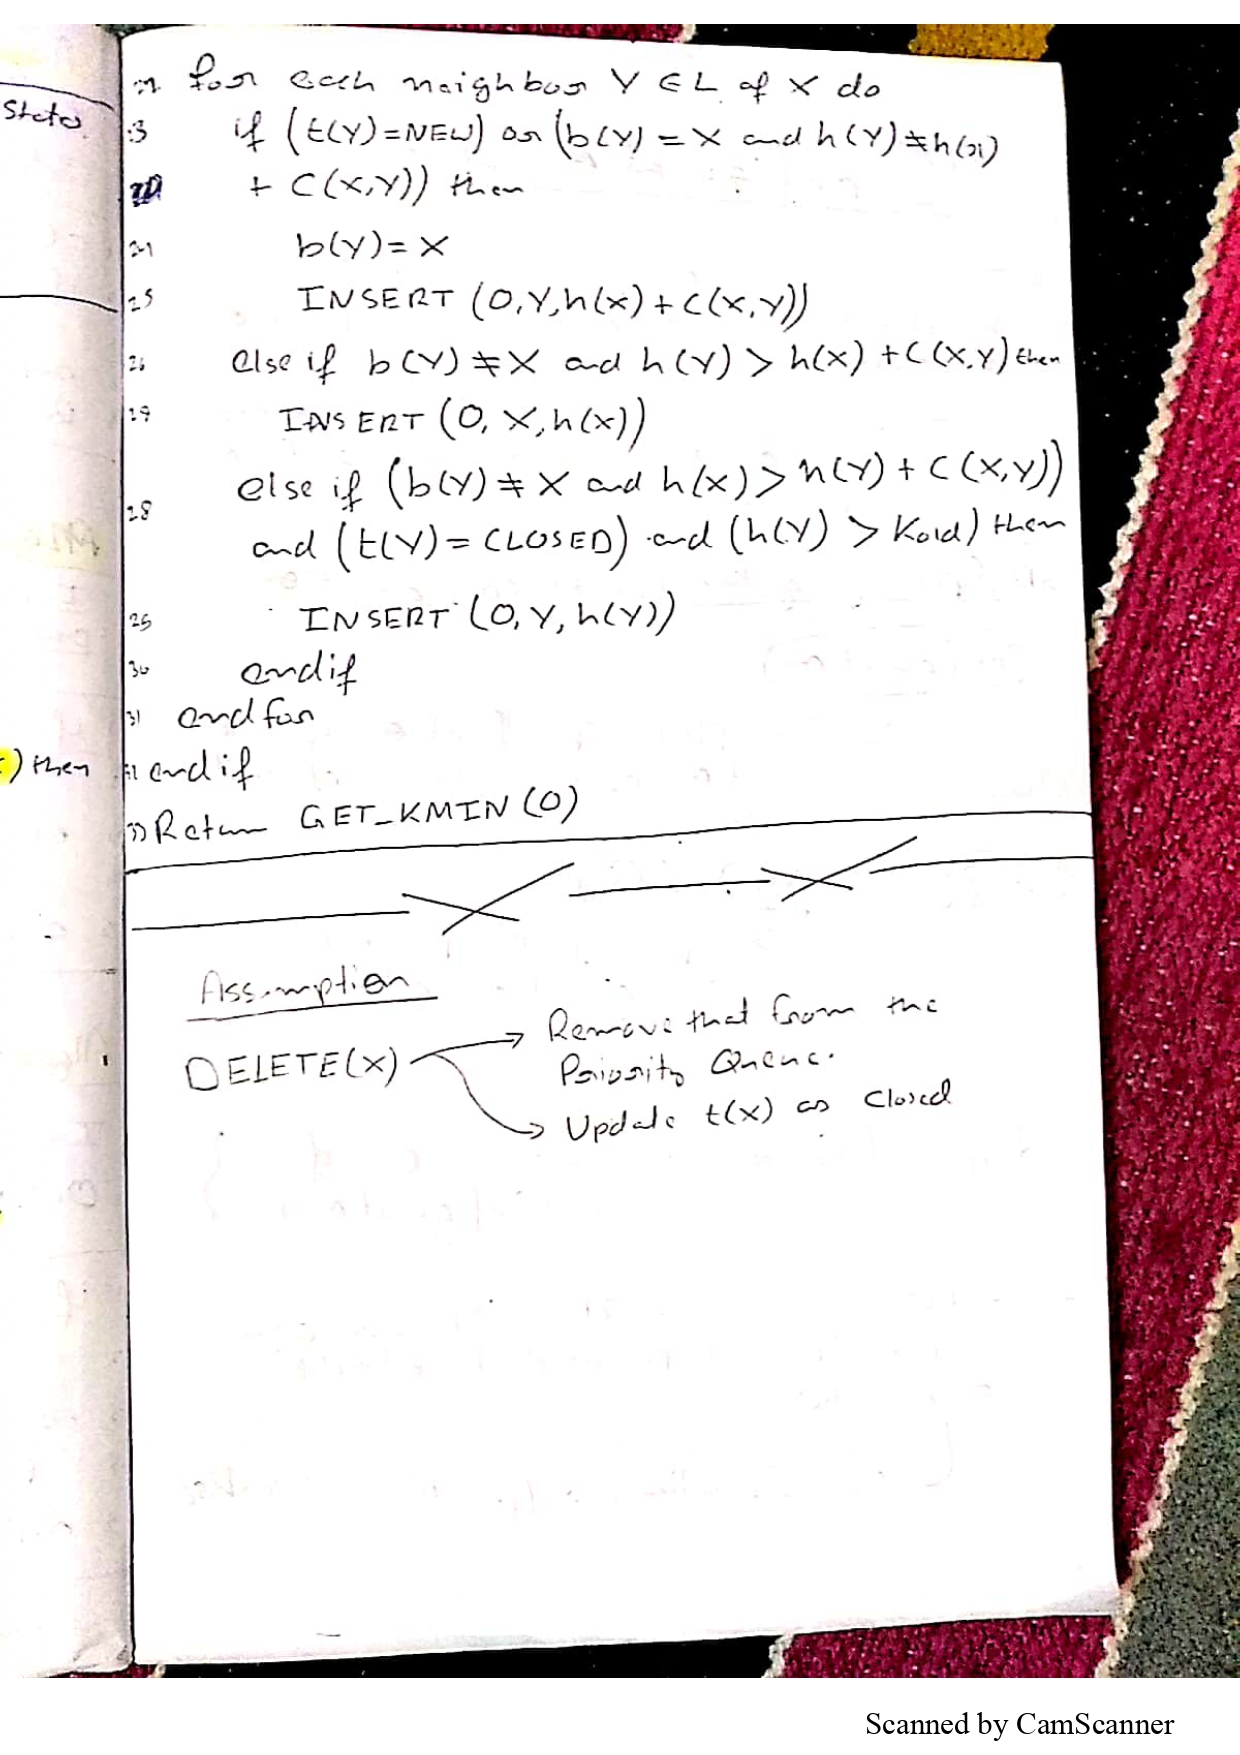 States
for each neighbor Y ∈ L of X do
if (t(Y)=NEW) or (b(Y) = X and h(Y)≠h(x)
+ C(X,Y)) then
b(Y)= X
25 INSERT (O,Y,h(x)+C(X,Y))
26 else if b(Y)≠X and h(Y) > h(x) +C(X,Y) then
INSERT (O, X, h(x))
else if (b(Y)≠X and h(x)>h(Y)+C(X,Y))
28 and (t(Y)= CLOSED) and (h(Y) > Kold) then
INSERT (O, Y, h(Y))
30 endif
31 endfor
) then
endif
Return GET_KMIN(O)
Assumption
DELETE(X) → Remove that from the
Priority Queue.
→ Update t(X) as Closed
Scanned by CamScanner